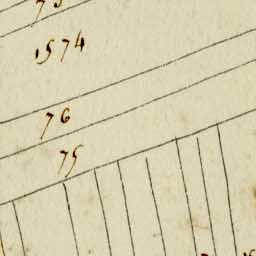 1574
76
75